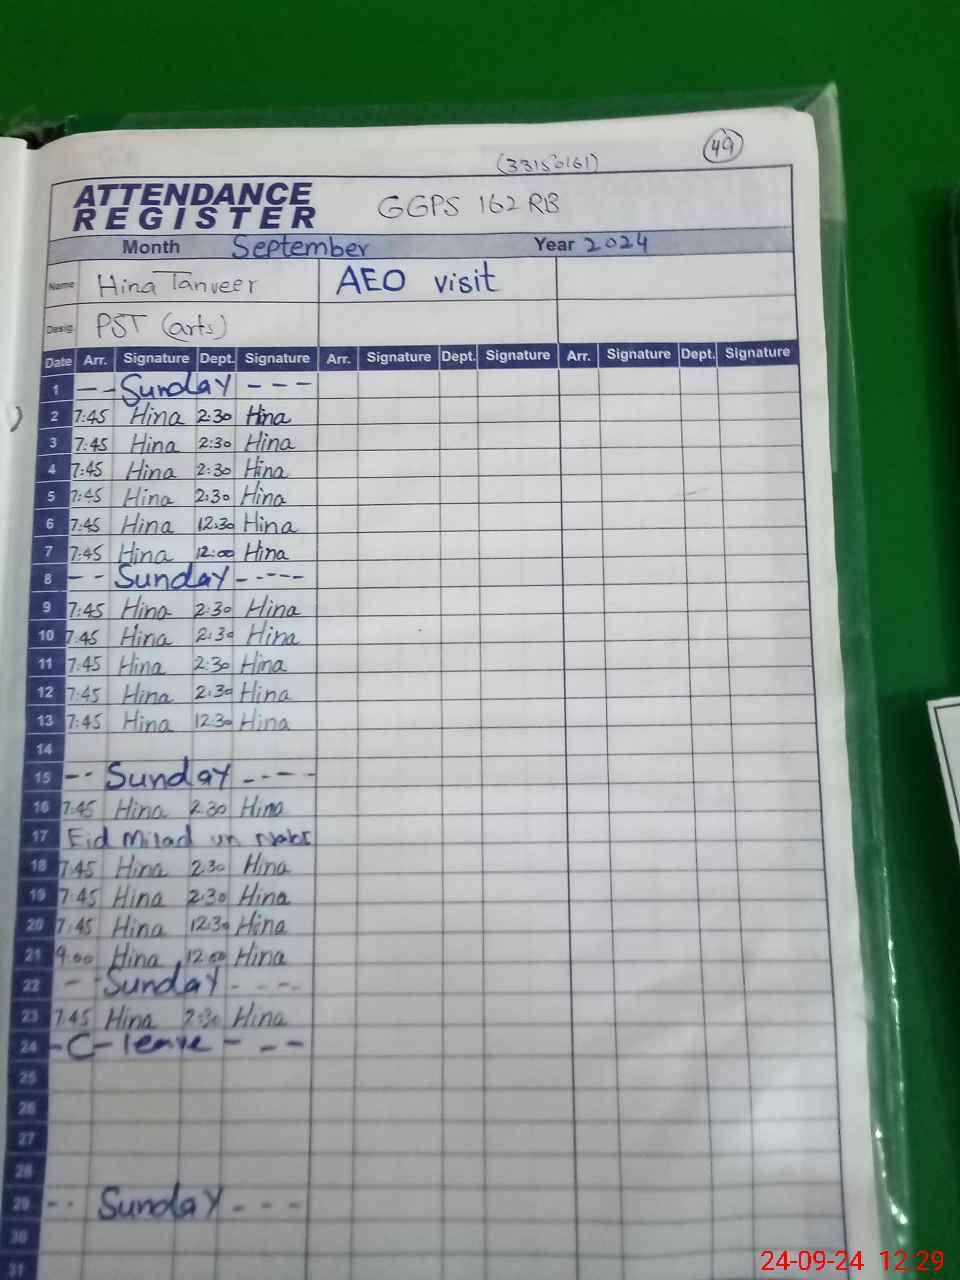 (33150161)
49
ATTENDANCE
REGISTER
GGPS 162 RB
Month September Year 2024
Name Hina Tanveer AEO visit
Desig. PST (arts)
Date Arr. Signature Dept. Signature Arr. Signature Dept. Signature Arr. Signature Dept. Signature
1 - - Sunday - - -
2 7:45 Hina 2:30 Hina
3 7:45 Hina 2:30 Hina
4 7:45 Hina 2:30 Hina
5 7:45 Hina 2:30 Hina
6 7:45 Hina 12:30 Hina
7 7:45 Hina 12:00 Hina
8 - - Sunday - - - - -
9 7:45 Hina 2:30 Hina
10 7:45 Hina 2:30 Hina
11 7:45 Hina 2:30 Hina
12 7:45 Hina 2:30 Hina
13 7:45 Hina 12:30 Hina
14
15 - - Sunday - - - -
16 7:45 Hina 2:30 Hina
17 Eid Milad un Nabi
18 7:45 Hina 2:30 Hina
19 7:45 Hina 2:30 Hina
20 7:45 Hina 12:30 Hina
21 9:00 Hina 12:00 Hina
22 - - Sunday - - - -
23 7:45 Hina 2:30 Hina
24 - C - leave - - -
25
26
27
28
29 - - Sunday - - -
30
31
24-09-24 12:29